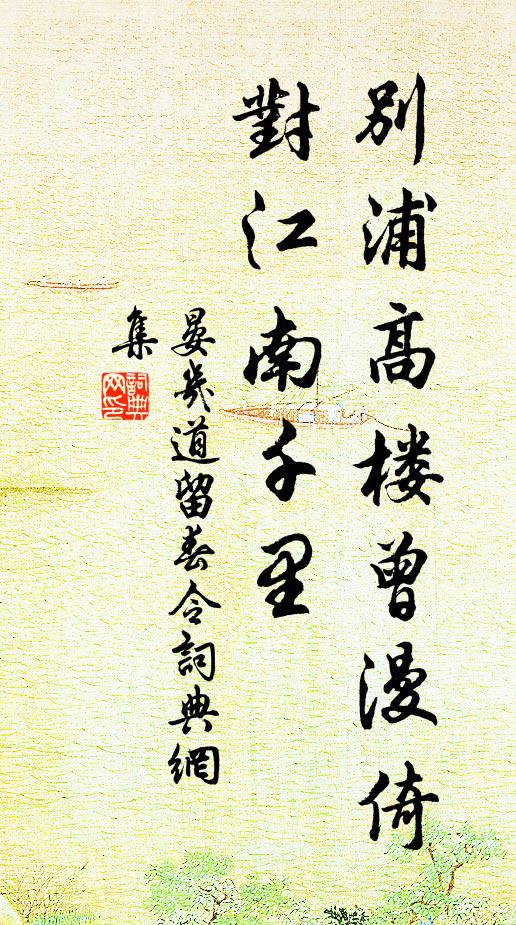 別浦高楼曾漫倚
對江南千里
晏幾道留春令詞典網
集
詞典
网印